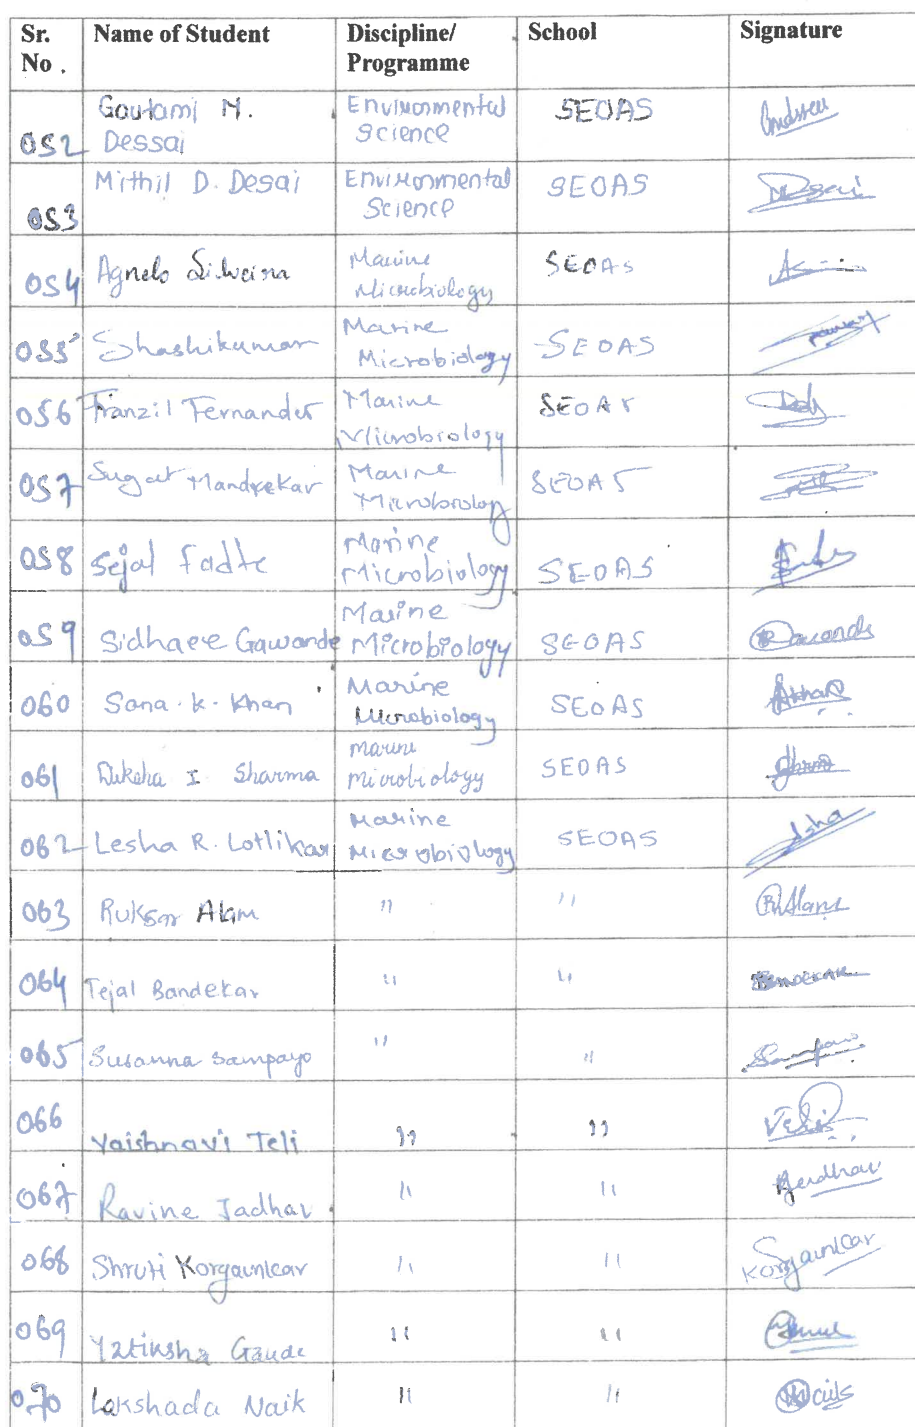 Sr. No . Name of Student Discipline/ Programme School Signature
052 Gautami M. Dessai Environmental Science SEOAS
053 Mithil D. Desai Environmental Science SEOAS Desai
054 Agnelo Silveira Marine Microbiology SEOAS
055 Shashikumar Marine Microbiology SEOAS
056 Franzil Fernandes Marine Microbiology SEOAS
057 Sugat Mandrekar Marine Microbiology SEOAS
058 Sejal Fadte Marine Microbiology SEOAS
059 Sidhaee Gawande Marine Microbiology SEOAS
060 Sana . K . Khan Marine Microbiology SEOAS
061 Diksha I Sharma Marine Microbiology SEOAS
062 Lesha R. Lotlikar Marine Microbiology SEOAS
063 Ruksar Alam " "
064 Tejal Bandekar " " Bandekar
065 Susanna Sampayo " "
066 Vaishnavi Teli " " Teli
067 Ravine Jadhav " "
068 Shruti Korgaunkar " " Korgaunkar
069 Yatiksha Gaude " "
070 Lakshada Naik " " Naik